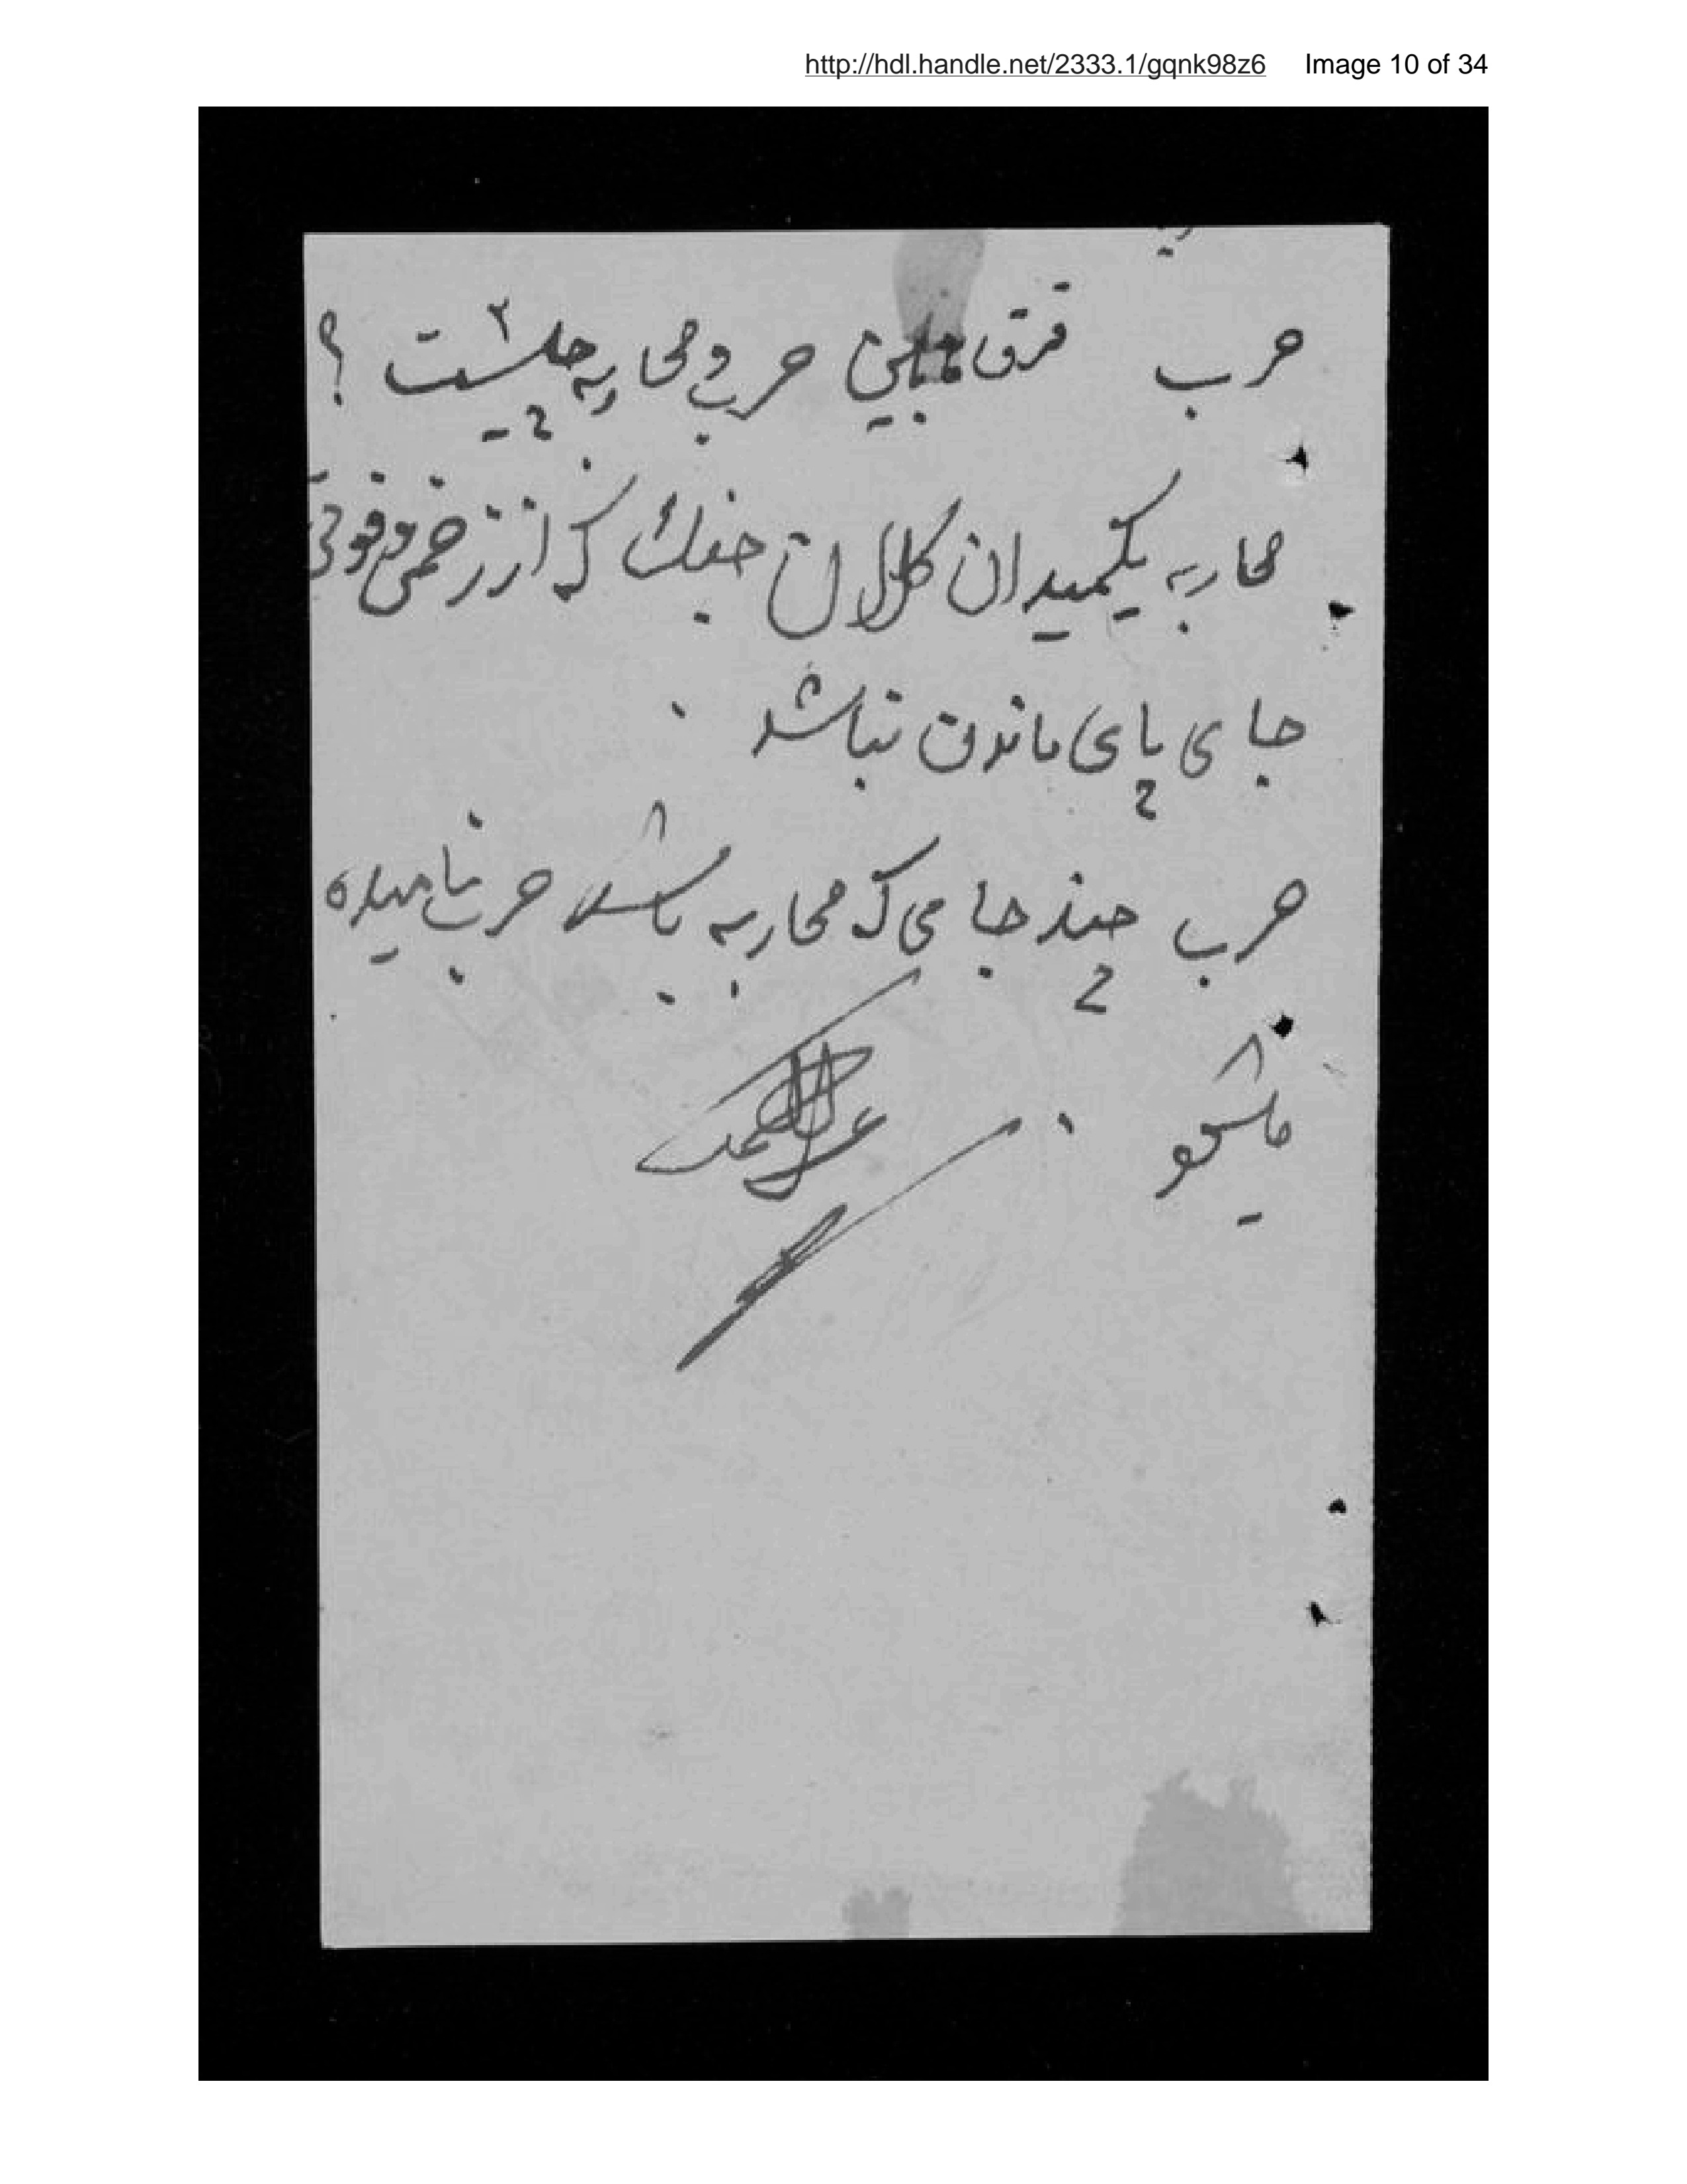 http://hdl.handle.net/2333.1/gqnk98z6 Image 10 of 34
حرب فرق مابین حرب و محاربه چیست ؟
محاربه یکمیدان کلان جنگ که از زخمی و فوتی
جای پای ماندن نباشد .
حرب چند جا می که محاربه باشد حرب نامیده
میشود .